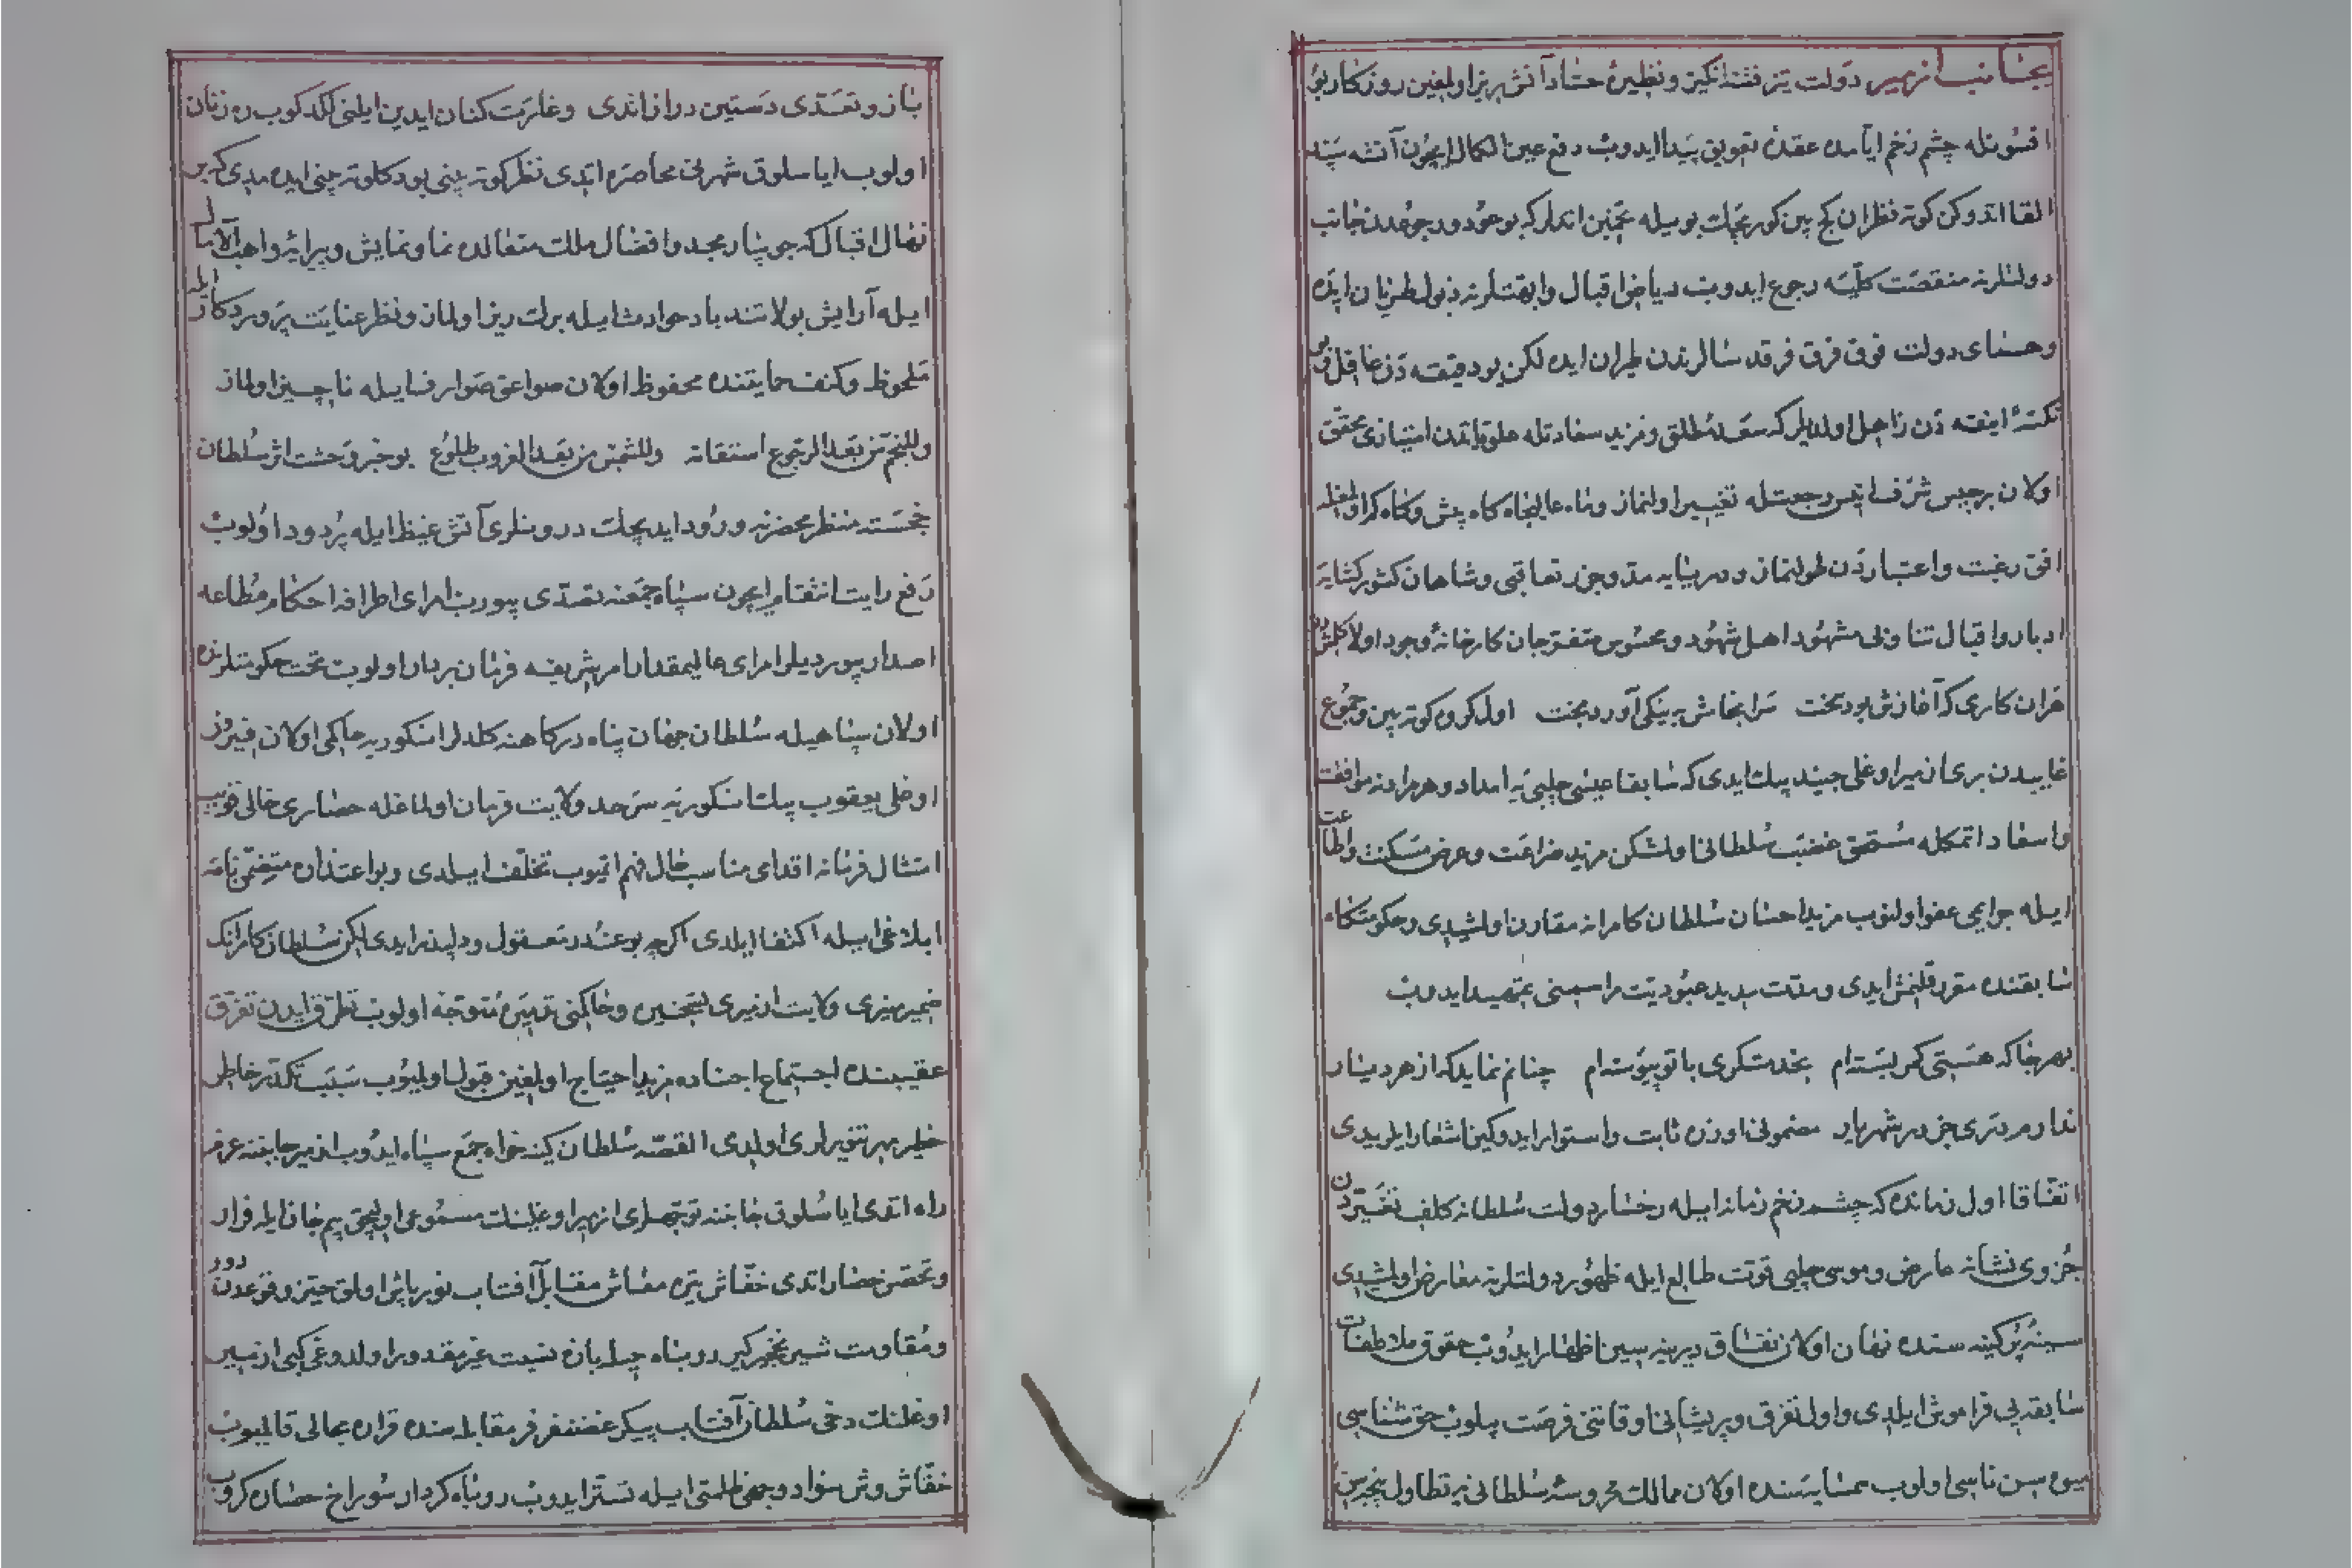 بجانب ازمیر دولت تیز فتنه‌انکیز و نظیرۀ حساد آتش‌ریز اولمغین روزکار بو
افسونله چشم زخم ایامده عقدۀ تعویق پیدا ایدوب دفع عین الکمال ایچون آتشه سپند
القا اتدوکن کوته نظران کج بین کورنجلت بوسیله تخمین اتدلر که بو عود و رجوعدن جانب
دولتلرنه منقصت کلیه رجوع ایدوب ریاض اقبال وابهتلرنه ذبول طریان ایده
وهمای دولت فوق فرق فرقد سالرندن طیران ایده لکن بو دقیقه دن غافل و بو
نکتۀ انیقه دن ذاهل اولدیلر که سعد مطلق و مزید سعادتله علویاتدن امتیازی محقق
اولان برجیس شرف انیس رجعتله تغییر اولنماز و ماه عالیجاه کاه بیش و کاه کم اولمغله
افق رغبت و اعتباردن طولنماز و دریایه مد و جزر تعاقبی و شاهان کشور کشایه
ادبار و اقبال تناوبی مشهود اهل شهود و محسوس متفرجان کارخانۀ وجود اولا کلمشدر
هران کاری که آغازش بود سخت سرانجامش به نیکی آورد بخت اول کروه کوته بین و جموع
غاییدن بری ازمیر اوغلی جنید بیک ایدی که سابقا عیسی چلبی یه امداد و هرمرادنه موافقت
و اسعاد اتمکله مستحق غضب سلطانی اولمشکن مزید ضراعت و عرض مسکنت و اطاعت
ایله جرایمی عفو اولنوب مزید احسان سلطان کامرانه مقارن اولمشیدی و حکومتکاه
سابقنده مقرر قلنمش ایدی و مدت مدید عبودیت مراسمنی تمهید ایدوب
بهرجا که هستی کمر بسته‌ام بخدمتکری با تو پیوسته‌ام چنانم نماید که از هر دیار
ندارم دری جز در شهریار مضمونی اوزره ثابت و استوار ایدوکین اشعار ایلریدی
اتفاقا اول زمانده که چشم زخم زمانه ایله رخسار دولت سلطانه کلف تغیردن
جزوی نشانه عارض و موسی چلبی قوت طالع ایله ظهور دولتلرنه معارض اولمشیدی
سینۀ پر کینه سنده نهان اولان نفاق دیرینه سین اظهار ایدوب حقوق ملاطفات
سابقه یی فراموش ایلدی و اول تفرق و پریشانی اوقاتنی فرصت بیلوب حق شناسی
اولوب همسایه‌سنده اولان ممالک محروسۀ سلطانی یه تطاول
باز و تعدی دستین دراز اتدی و غارت کنان ایدین ایلنی لکدکوب ره زنان
اولوب ایاسلوق شهرنی محاصره اتدی نظر کوته بینی بود کلوته چنی ایده مدی کریر
نهال اقبال که جویبار مجد و افضال ملک متعالده نما و نمایش و پیرایۀ واهب الآلا
ایله آرایش بولا تندباد حوادث ایله برک ریز اولماز و نظر عنایت پروردکار ایله
ملحوظ و کنف حمایتنده محفوظ اولان صواعق صوارف ایله ناچیز اولماز
وللنجم من بعد الرجوع استقامة وللشمس من بعد الغروب طلوع بو خبر وحشت اثر سلطان
خجسته منظر محضرنه ورود ایدیجک درونلری آتش غیظ ایله پر دود اولوب
رفع رایت انتقام ایچون سپاه جمعنه تصدی بیورب امرای اطرافه احکام مطاعه
اصدار بیوردیلر امرای عالیمقدار امر شریفه فرمان بردار اولوب تحت حکومتلرنده
اولان سپاهیله سلطان جهان پناه درکاهنه کلدلر انکوریه حاکمی اولان فیروز
اوغلی یعقوب بیک انکوریه سرحد ولایت قرمان اولماغله حصاری خالی قویوب
امتثال فرمانه اقدامی مناسب حال فهم اتمیوب تخلف ایلدی و بو اعتذاره متضمن نامه
ابلاغی ایله اکتفا ایلدی اکرچه بو عذر معقول و دلپذیر ایدی لکن سلطان کامرانک
ضمیر منیری ولایت ازمیری تسخیره و حاکمنی تدمیره متوجه اولوب تطرق ایدن تفرق
عقیبنده اجتماع اجناده مزید احتیاج اولمغین قبول اولمیوب سبب تکدر خاطر
خطیر مهر تنویرلری اولدی القصه سلطان کینه خواه جمع سپاه ایدوب ازمیر جانبنه عزم
راه اتدی ایاسلوق جانبنه توجهلری ازمیر اوغلنک مسموعی اولیجق بیم جان ایله فرار
و تحصن حصار اتدی خفاش تیره معاش مقابل آفتاب نورپاش اولمق حیز وقوعدن دور
و مقاومت شیر نخجیرکیر روباه حیله بازه نسبت غیر مقدور اولدوغی کبی ازمیر
اوغلنک دخی سلطان آفتاب پیکر غضنفر فر مقابله سنده قراره مجالی قالمیوب
خفاش وش سواد وجهی ظلمتی ایله تستر ایدوب روباه کردار سوراخ حصاره کروب